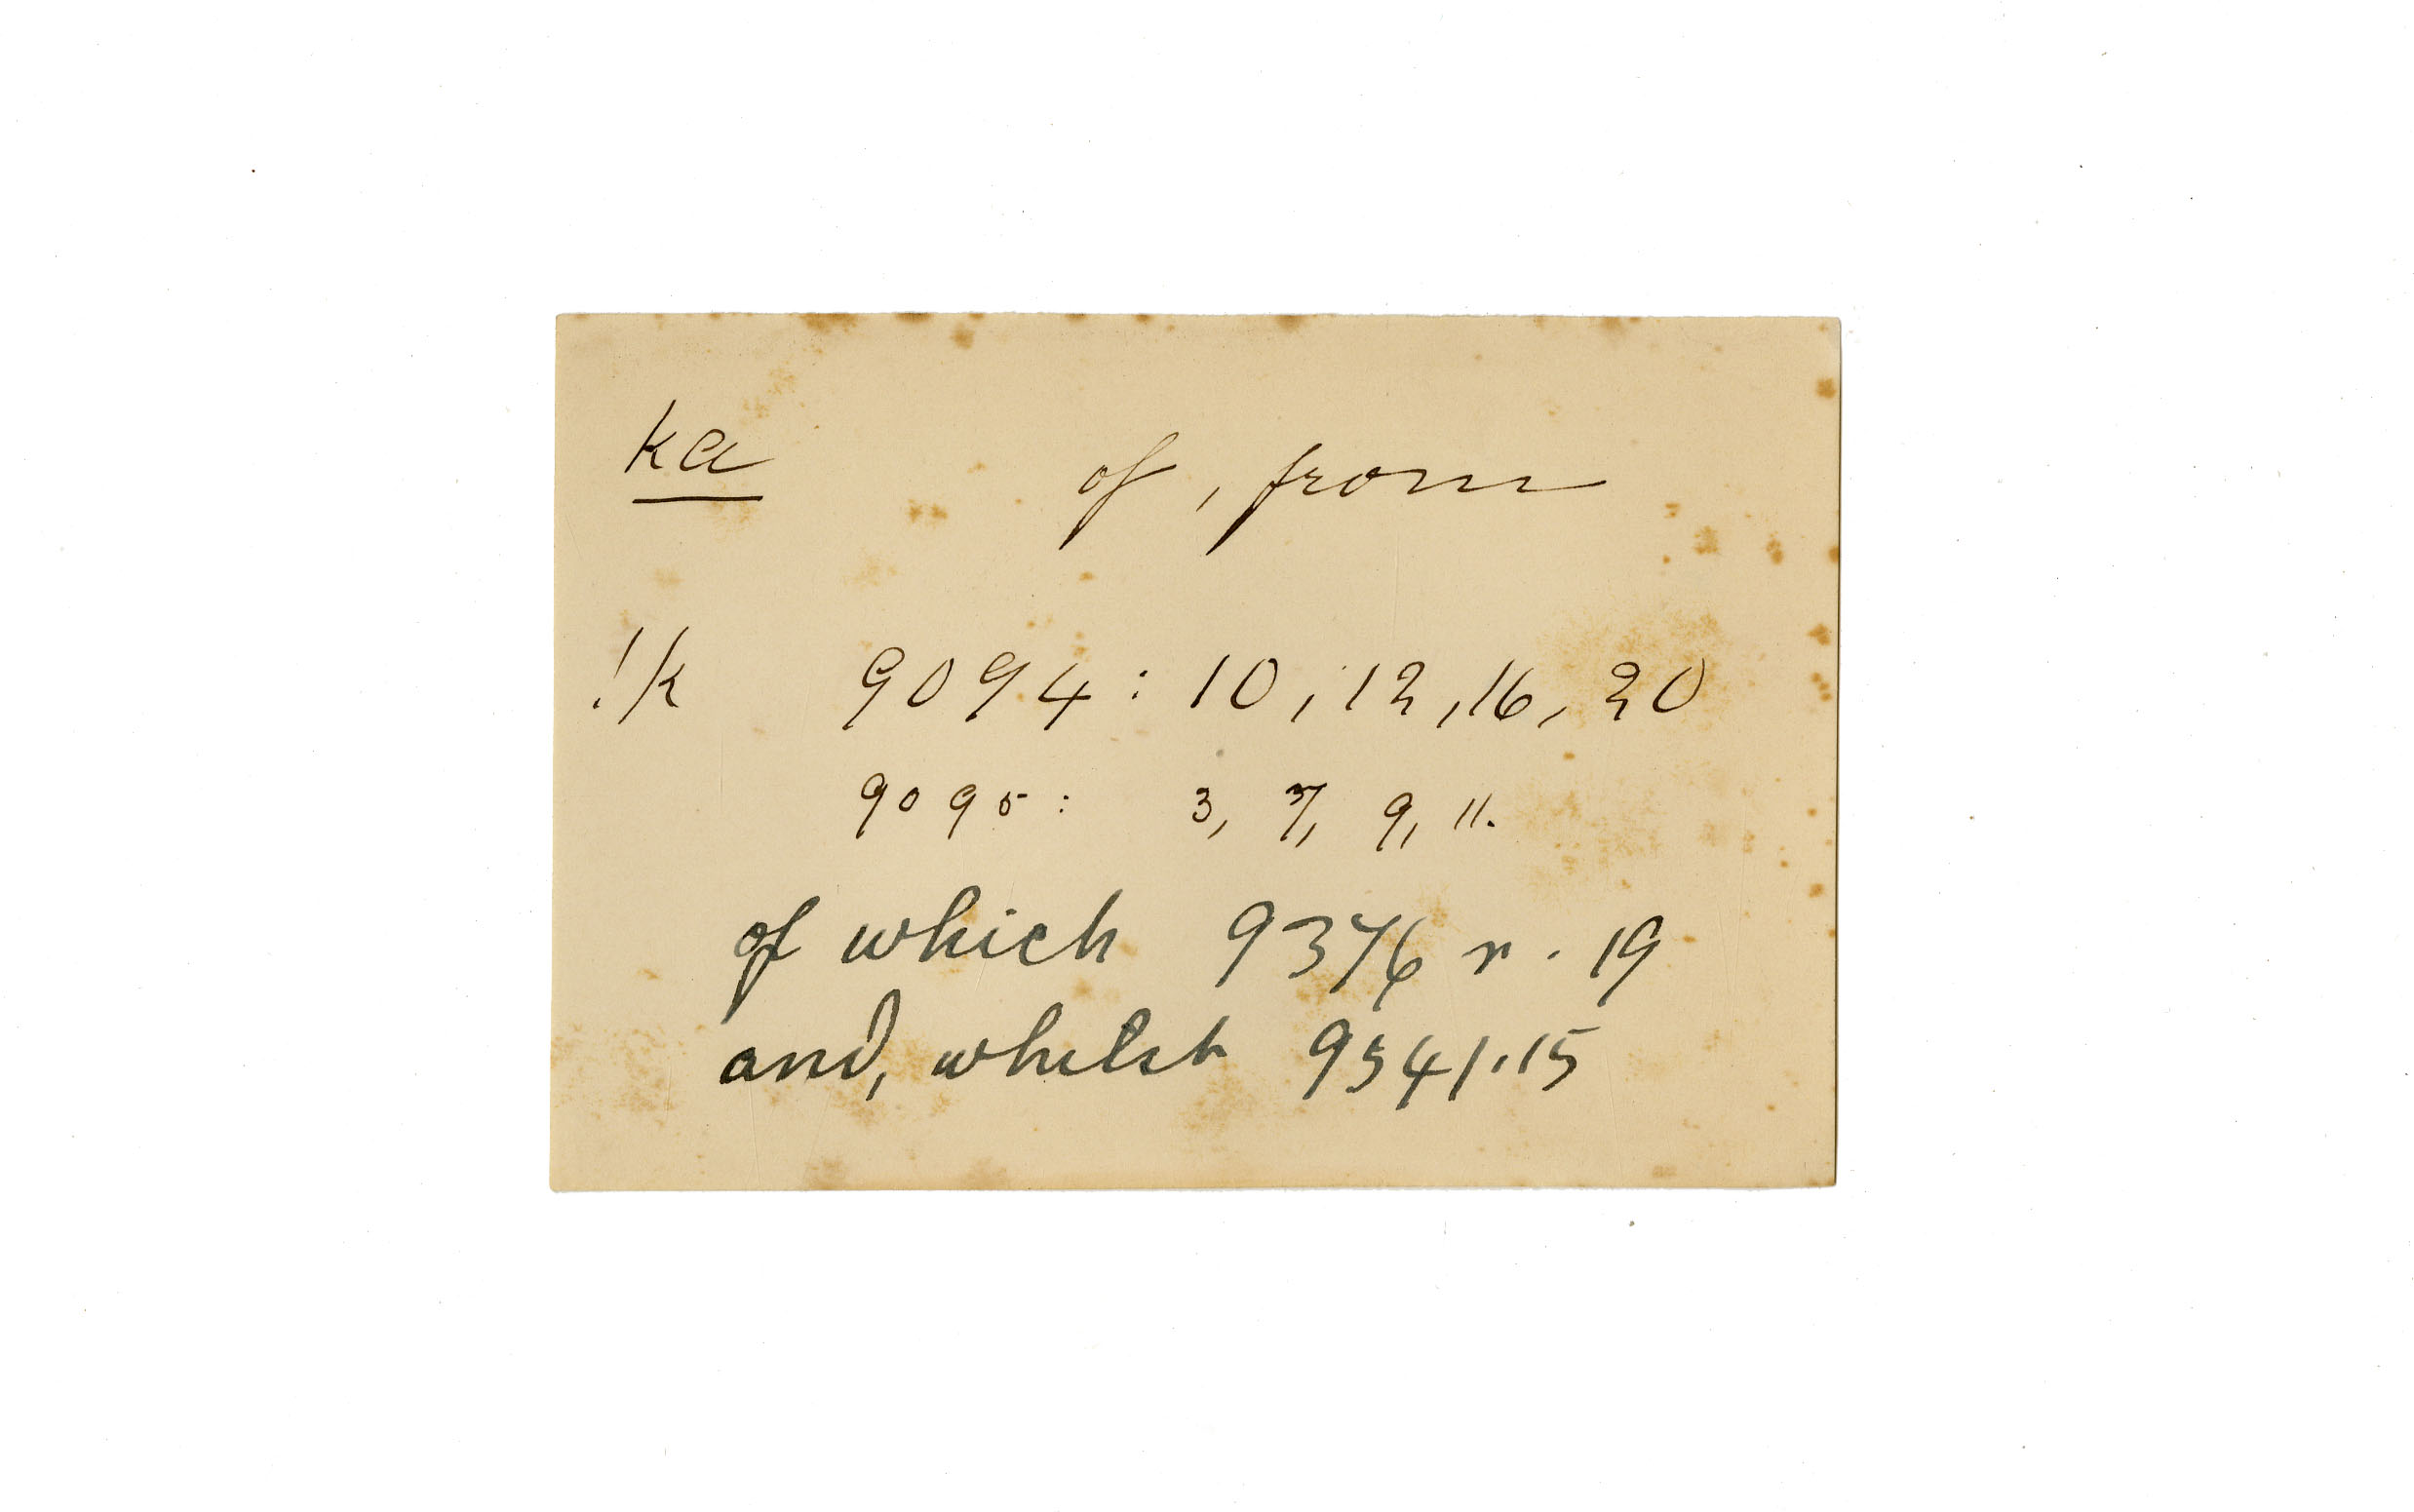 ka of, from
!k 9094: 10, 12, 16, 20
9095: 3, 7, 9, 11.
of which 9376 r. 19
and, whilst 9541.15